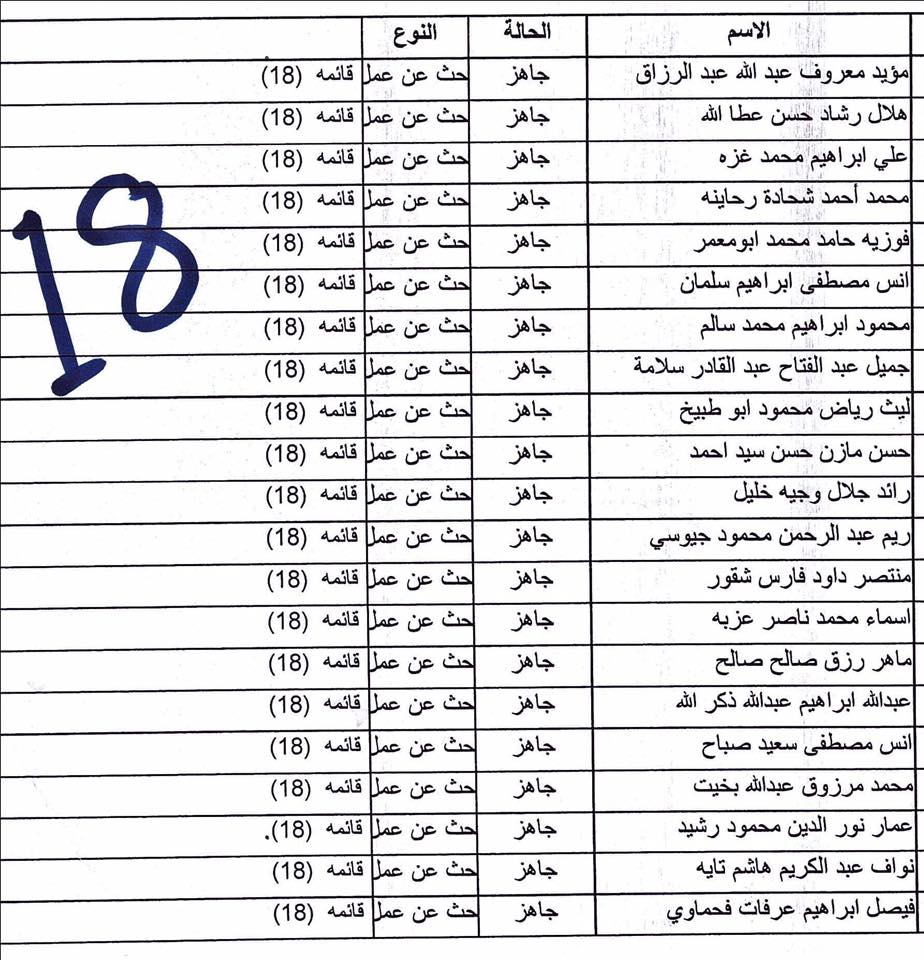 الاسم الحالة النوع
مؤيد معروف عبد الله عبد الرزاق جاهز حث عن عمل قائمه (18)
هلال رشاد حسن عطا الله جاهز حث عن عمل قائمه (18)
علي ابراهيم محمد غزه جاهز حث عن عمل قائمه (18)
محمد أحمد شحادة رحاينه جاهز حث عن عمل قائمه (18)
فوزيه حامد محمد ابومعمر جاهز حث عن عمل قائمه (18)
انس مصطفى ابراهيم سلمان جاهز حث عن عمل قائمه (18)
محمود ابراهيم محمد سالم جاهز حث عن عمل قائمه (18)
جميل عبد الفتاح عبد القادر سلامة جاهز حث عن عمل قائمه (18)
ليث رياض محمود ابو طبيخ جاهز حث عن عمل قائمه (18)
حسن مازن حسن سيد احمد جاهز حث عن عمل قائمه (18)
رائد جلال وجيه خليل جاهز حث عن عمل قائمه (18)
ريم عبد الرحمن محمود جيوسي جاهز حث عن عمل قائمه (18)
منتصر داود فارس شقور جاهز حث عن عمل قائمه (18)
اسماء محمد ناصر عزبه جاهز حث عن عمل قائمه (18)
ماهر رزق صالح صالح جاهز حث عن عمل قائمه (18)
عبدالله ابراهيم عبدالله ذكر الله جاهز حث عن عمل قائمه (18)
انس مصطفى سعيد صباح جاهز حث عن عمل قائمه (18)
محمد مرزوق عبدالله بخيت جاهز حث عن عمل قائمه (18)
عمار نور الدين محمود رشيد جاهز حث عن عمل قائمه (18).
نواف عبد الكريم هاشم تايه جاهز حث عن عمل قائمه (18)
فيصل ابراهيم عرفات فحماوي جاهز حث عن عمل قائمه (18)
18